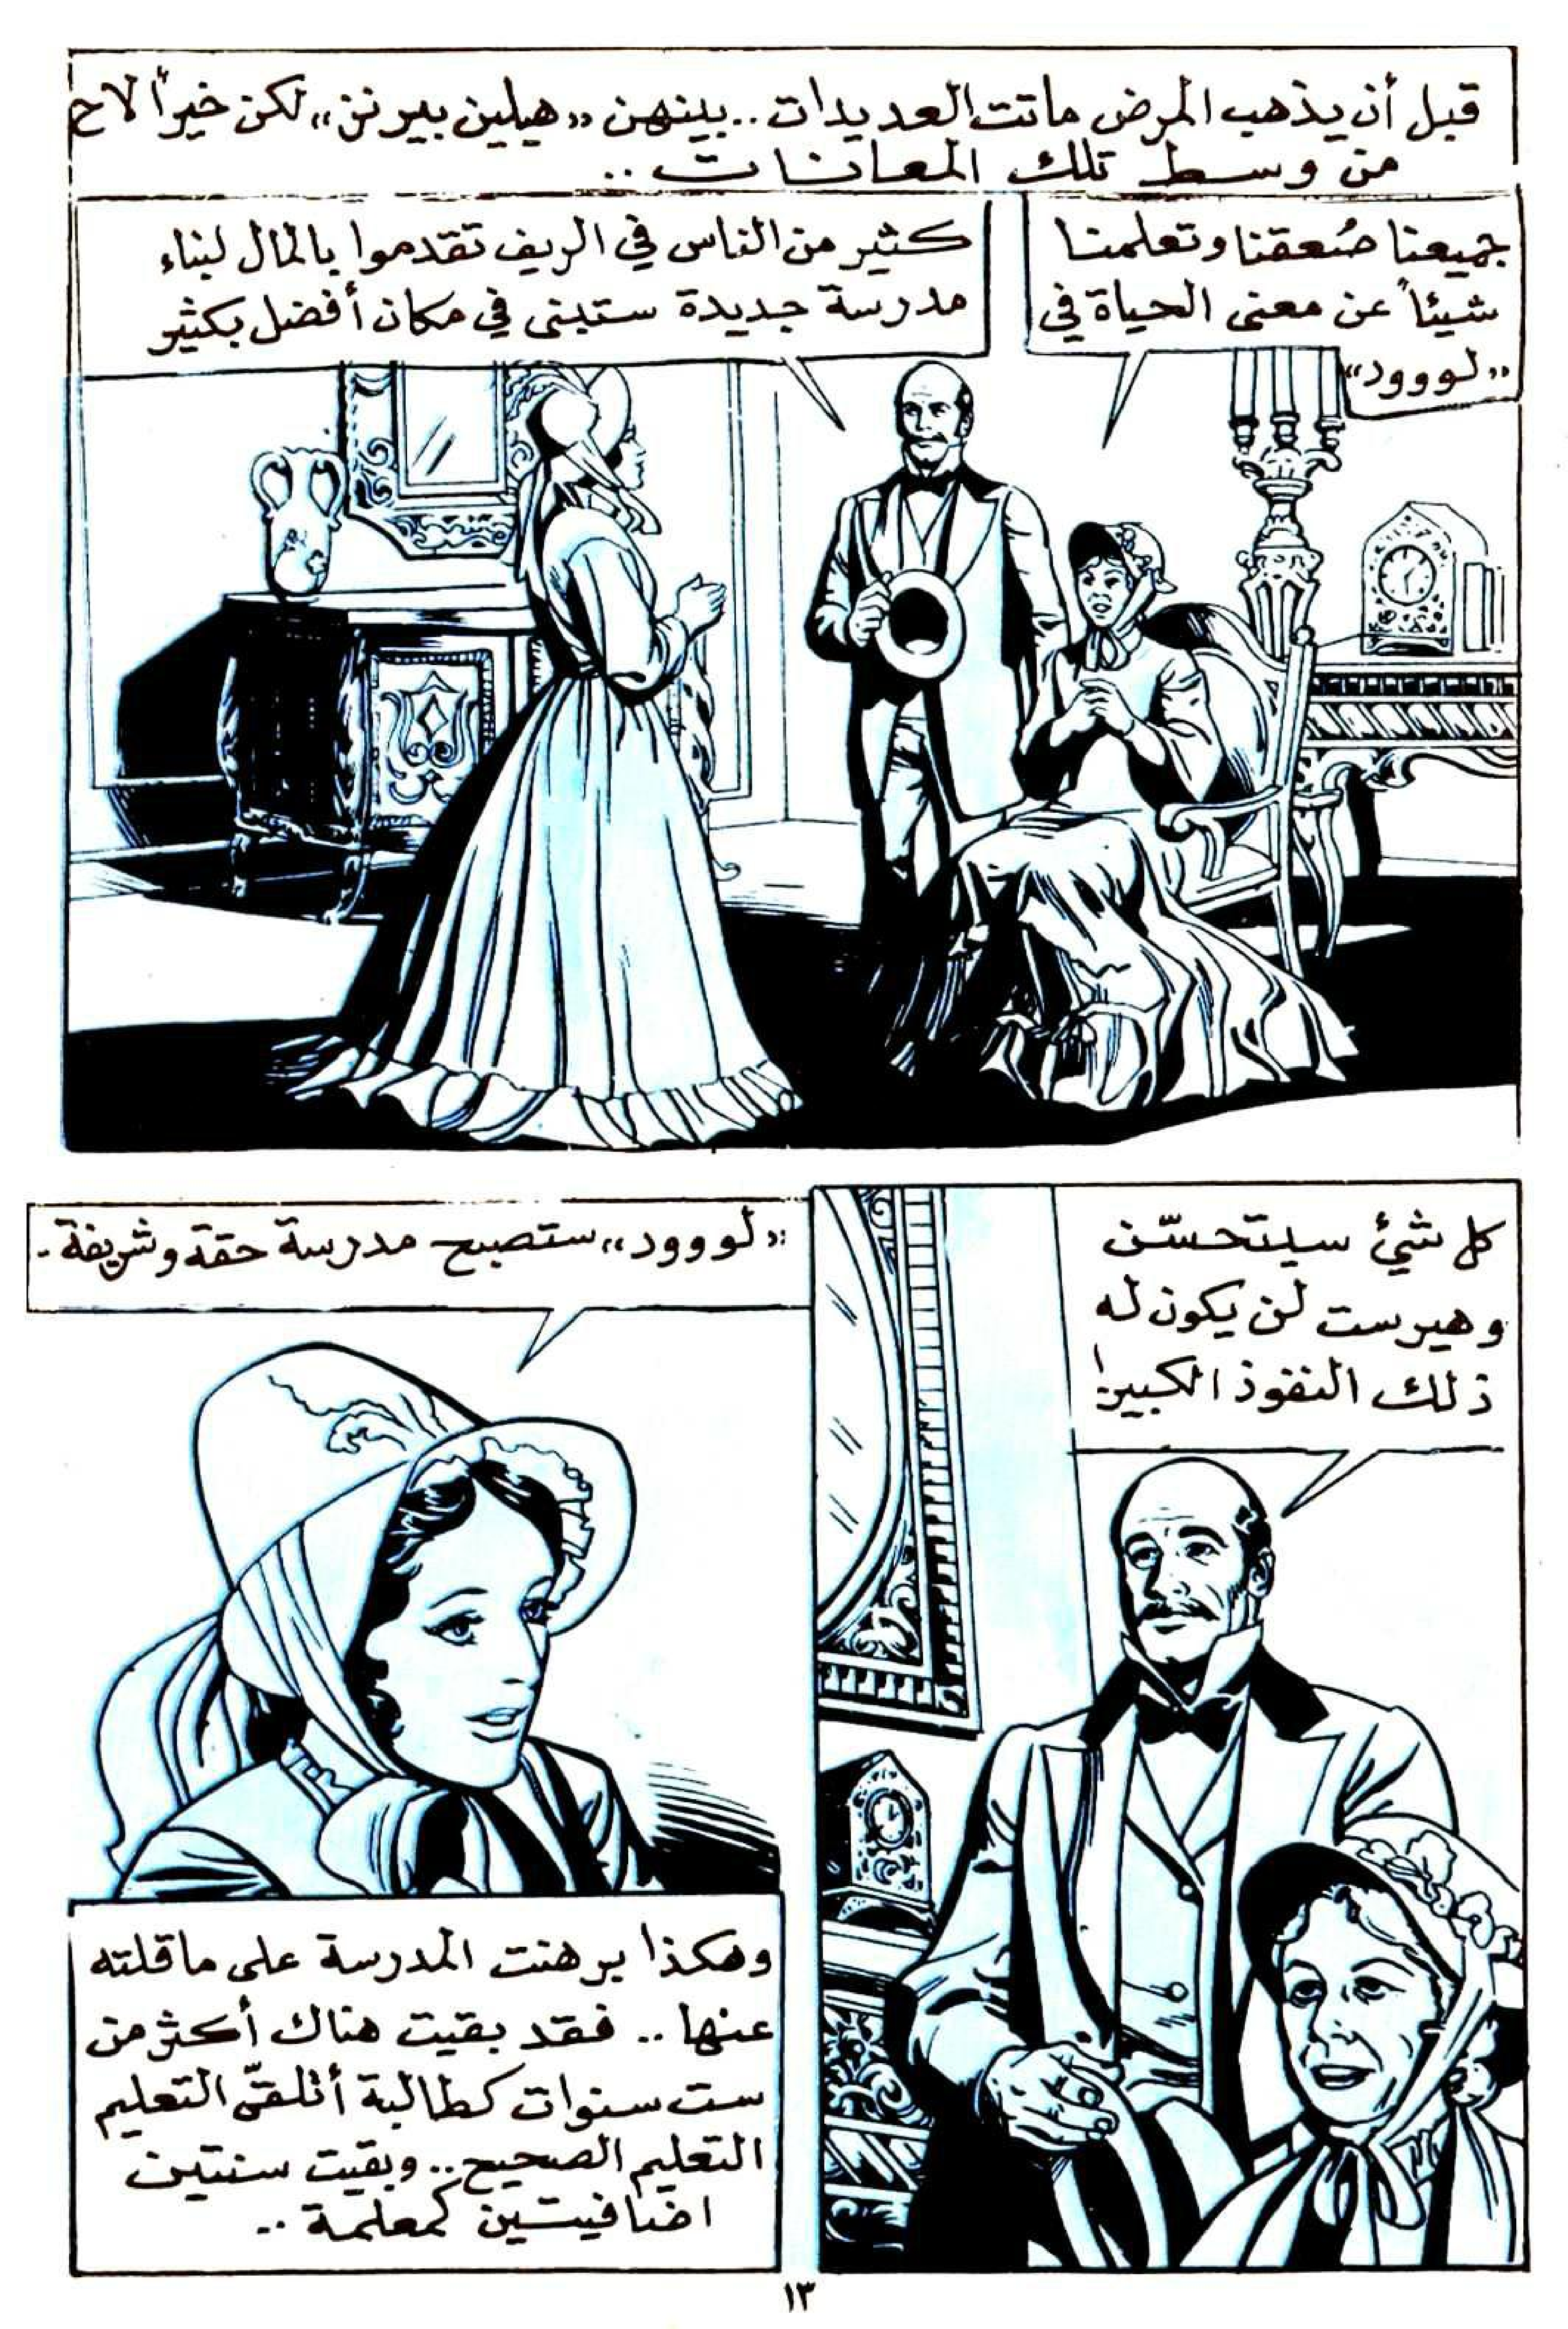 قبل أن يذهب المرض ماتت العديدات .. بينهن «هيلين بيرنز» لكن خيراً لاح
من وسط تلك المعانات ..
جميعنا صُعقنا وتعلمنا
شيئاً عن معنى الحياة في
«لووود»
كثير من الناس في الريف تقدموا بالمال لبناء
مدرسة جديدة ستبنى في مكان أفضل بكثير
كل شيئ سيتحسّن
وهيرست لن يكون له
ذلك النفوذ الكبير!
«لووود» ستصبح مدرسة حقة وشريفة -
وهكذا برهنت المدرسة على ما قلته
عنها .. فقد بقيت هناك أكثر من
ست سنوات كطالبة أتلقّى التعليم
التعليم الصحيح .. وبقيت سنتين
اضافيتين كمعلمة ..
١٣